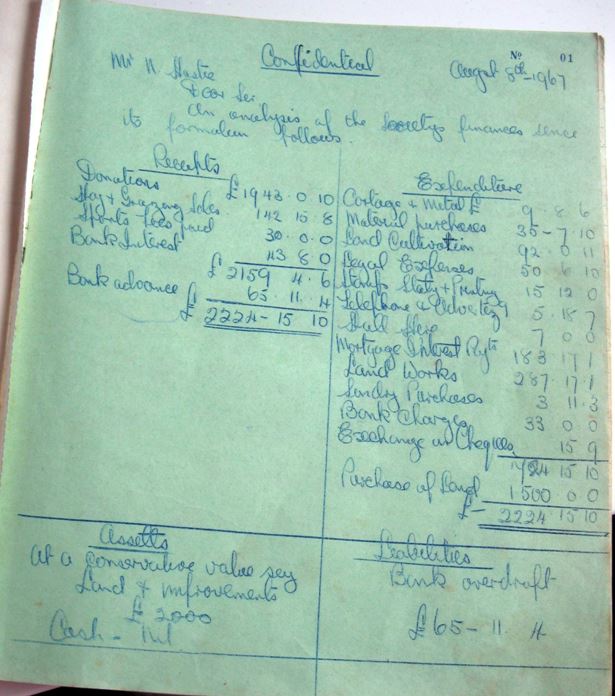 Confidential
№ 01
August 8th - 1967
Mr N
Dear Sir
An analysis of the Societys finances since
its formation follows.
Receipts
Donations £1943. 0. 10
Hay + Grazing Sales 142 15. 8
Sports fees paid 30. 0. 0
Bank Interest 43 8 0
£ 2159 4. 6
Bank advance 65. 11. 4
£ 2224 - 15 10
Expenditure
Cartage + Metal £ 9. 8 6
Material purchases 35 - 7. 10
Land Cultivation 92. 0 11
Legal Expenses 50 6 10
Stamps Staty + Printing 15 12 0
Telephone & Advertizg 5. 18 7
Hall Hire 7 0 0
Mortgage Interest Pyts 183 17 1
Land Works 287. 17 1
Sundry Purchases 3 11. 3
Bank Charges 33 0 0
Exchange on Cheques 15 9
724 15 10
Purchase of Land 1500 0 0
£- 2224. 15 10
Assetts
At a conservative value say
Land + improvements
£ 2000
Cash - Nil
Leabilities
Bank overdraft
£65 - 11. 4